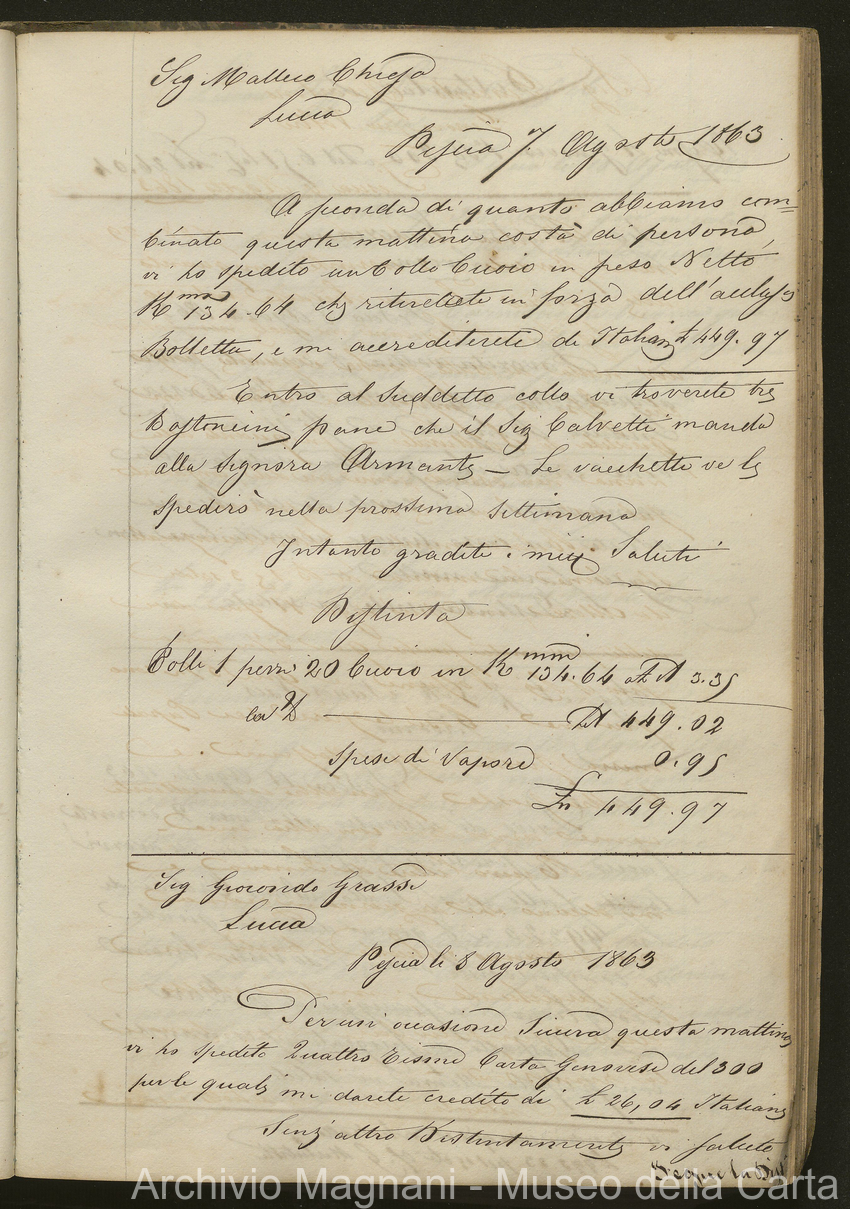 Sig Matteo Chiesa
Lucca
Pescia 7. Agosto 1863
A seconda di quanto abbiamo com=
binato questa mattina costà di persona,
vi ho spedito un Collo Cuoio in peso Netto
K mmi 134.64 che ritirerete in forza dell'acclusa
Bolletta, e mi accrediterete di Italiane £ 449.97
Entro al suddetto collo vi troverete tre
Bastoncini pane che il Sig Calvetti manda
alla Signora Armanta — Le vacchette ve le
spedirò nella prossima settimana
Intanto gradite i miei Saluti
Distinta
Colli 1 pezzi 20 Cuoio in K mmi 134.64 a £ 3.35
449.02
Spese di Vapore 0.95
449.97
Sig Giocondo Grassi
Lucca
Pescia li 8 Agosto 1863
Per un occasione Sicura questa mattina
vi ho spedito Quattro Risme Carta Genovese del 300
per le quali mi darete credito di £ 26,04 Italiane
Senz'altro Distintamente vi saluto
Segue la
Archivio Magnani - Museo della Carta